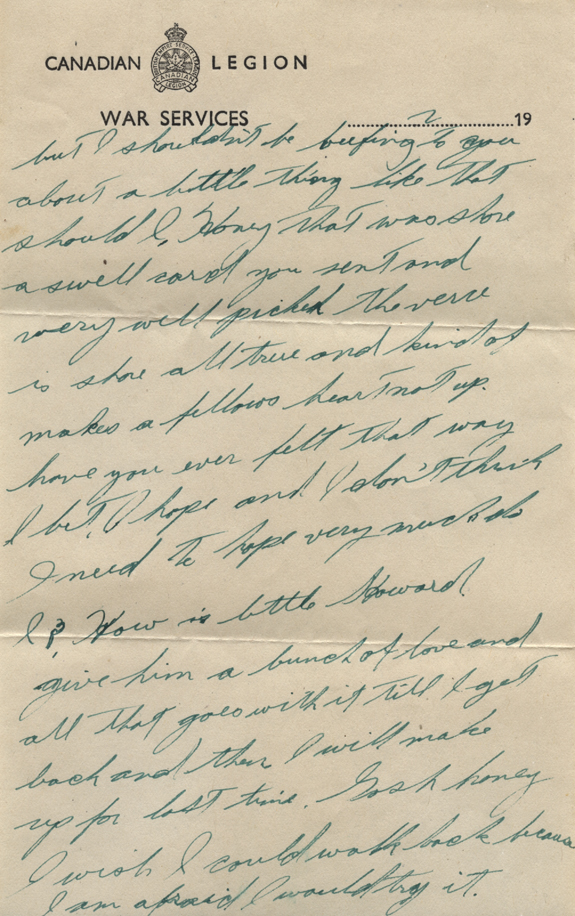 CANADIAN LEGION
WAR SERVICES
2 19
but I shouldn't be beefing to you
about a little thing like that
should I, Honey that was shore
a swell card you sent and
very well picked the verse
is shore all true and kind of
makes a fellows heart not up.
have you ever felt that way
I bet, I hope and I don't think
I need to hope very much do
I? How is little Howard.
give him a bunch of love and
all that goes with it till I get
back and then I will make
up for lost time. Gosh honey
I wish I could walk back because
I am afraid I would try it.